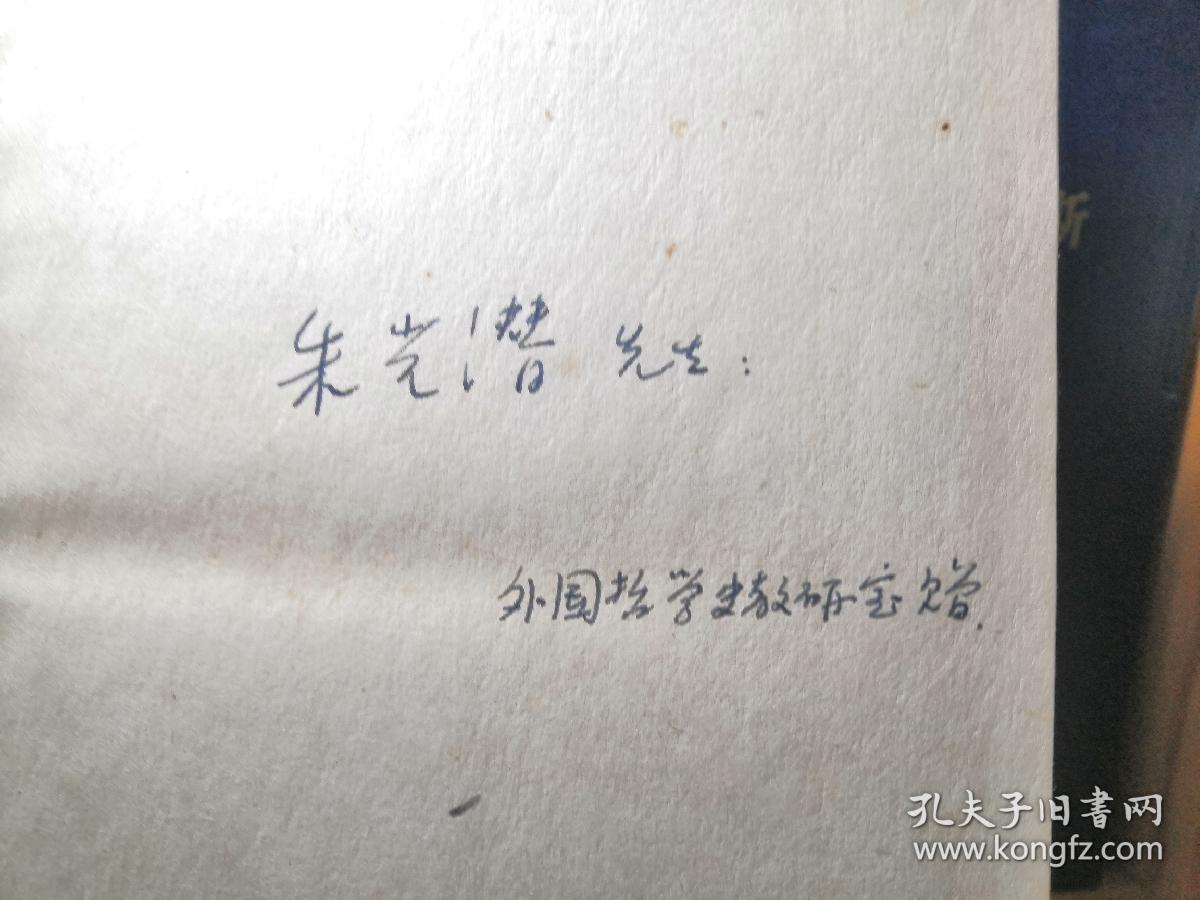 朱光潜 先生:
外国哲学史教研室赠.
新
孔夫子旧书网
www.kongfz.com